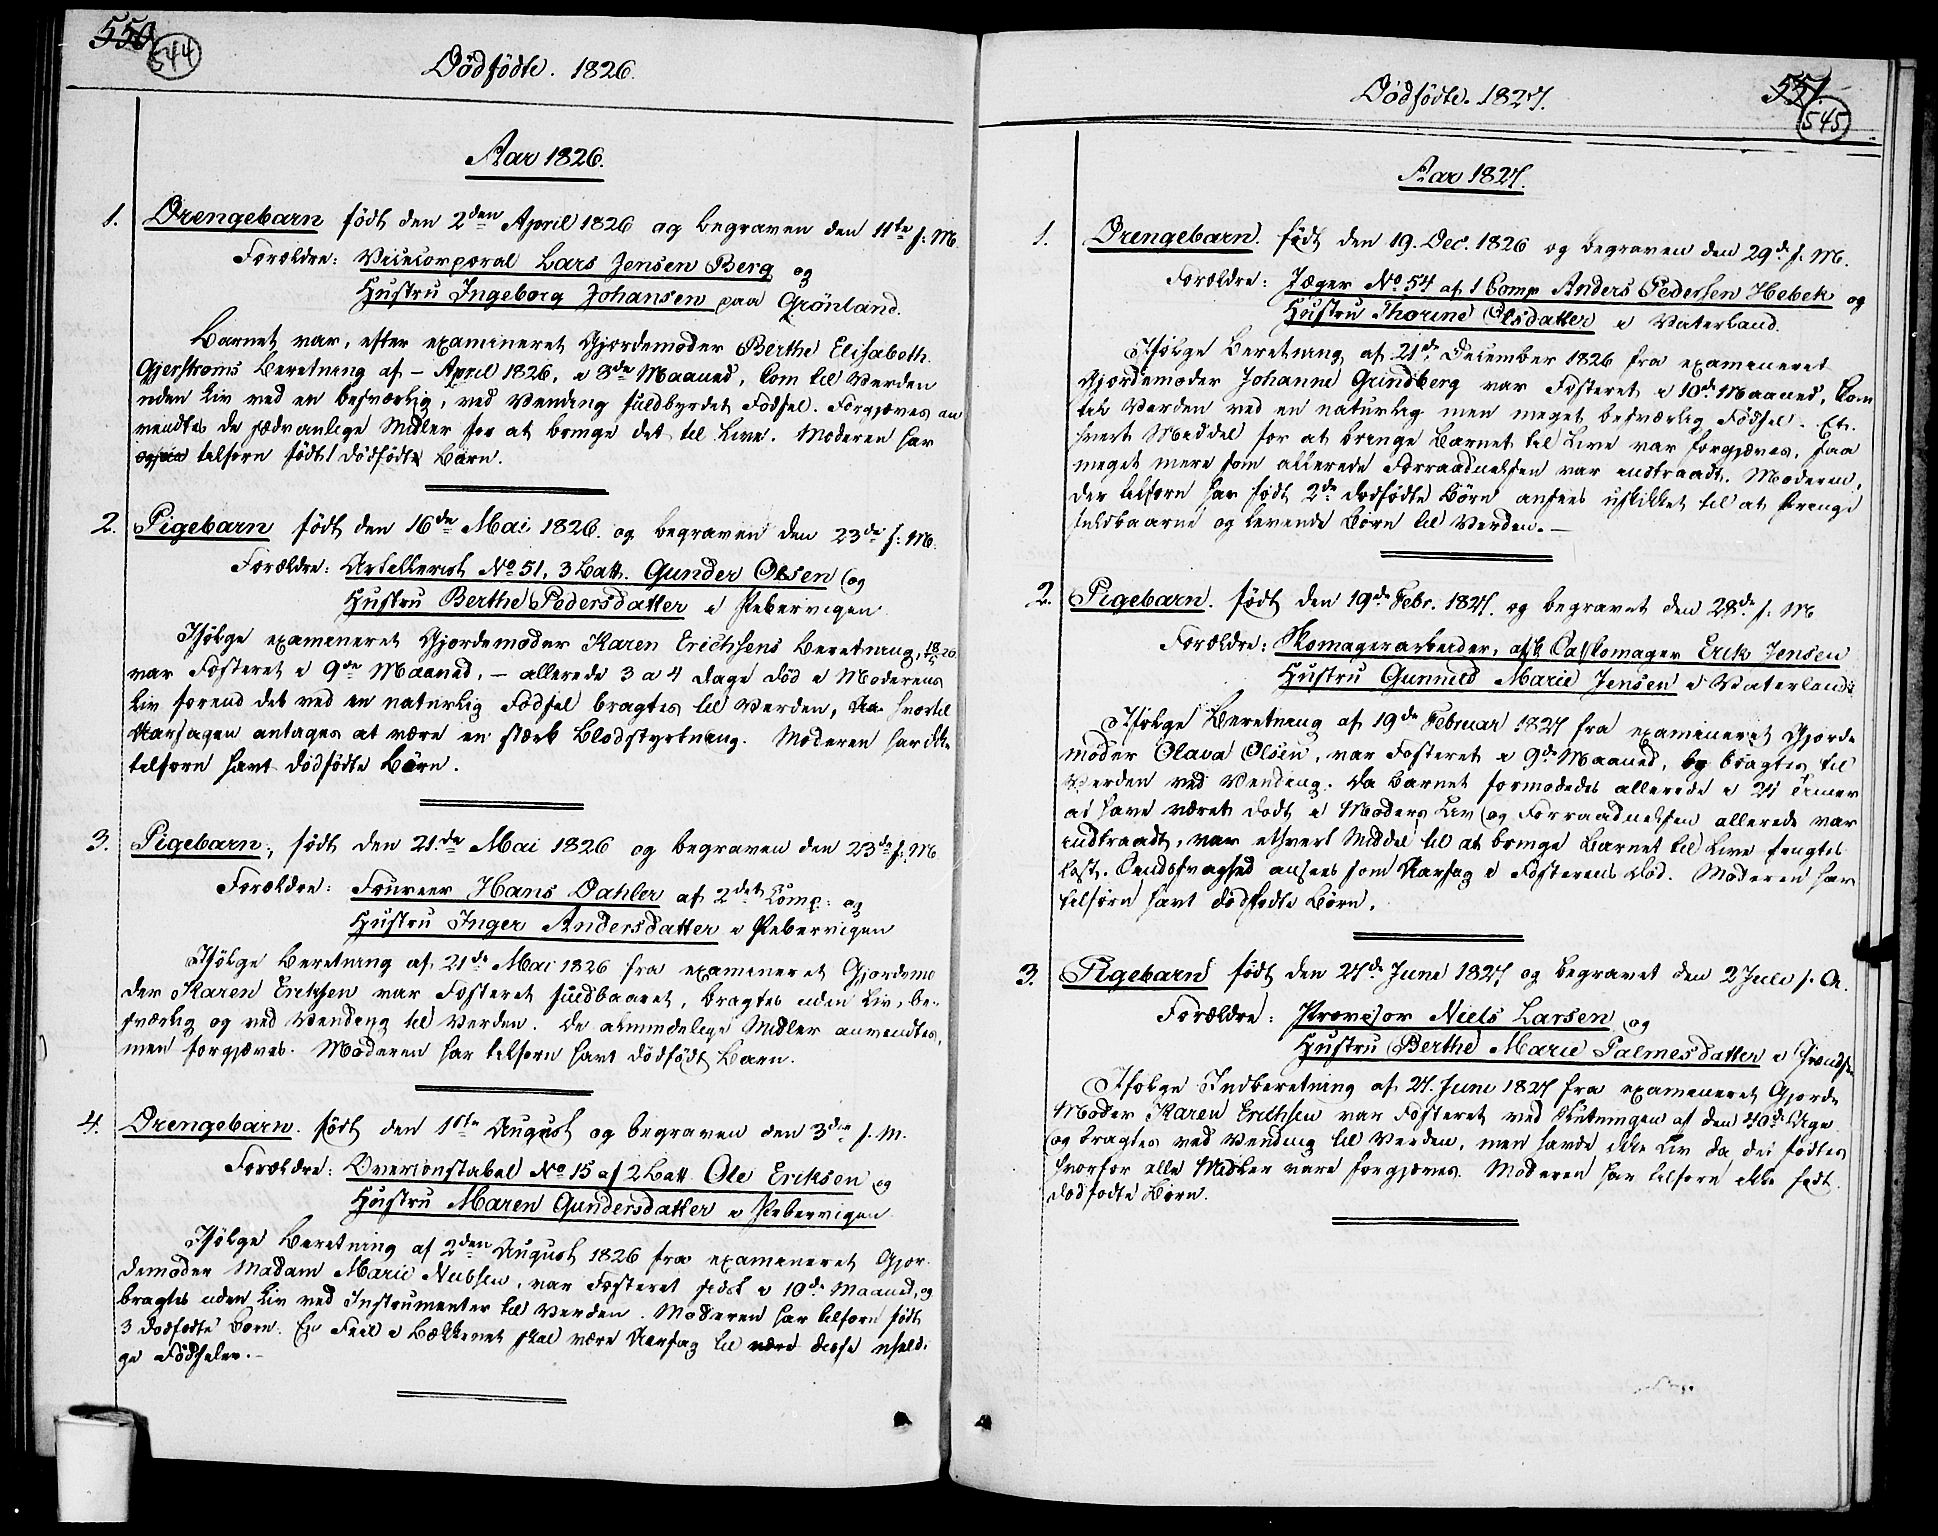 550
544
Dödfödte. 1826.
Aar 1826.
1. Drengebarn födt den 2den April 1826 og begraven den 11te s: M.
Forældre: Vicecorporal Lars Jensen Berg og
Hustru Ingeborg Johansen paa Grönland.
Barnet var, efter examineret Gjordemoder Berthe Elisabeth
Gjerstroms Beretning af – April 1826, i 8de Maaned, kom til Verden
uden Liv ved en besværlig, ved Vending fuldbyrdet Födsel. Forgjæves an
vendtes de sædvanlige Midler for at bringe det til Live. Moderen har
tilforn födt 1 dödfödt Barn.
2. Pigebarn födt den 16de Mai 1826. og begraven den 23de s: M.
Forældre: Artillerist No 51, 3 Batt. Gunder Olsen og
Hustru Berthe Pedersdatter i Pebervigen
Ifölge examineret Gjordemoder Karen Erichsens Beretning, 18/5 26
var Fosteret i 9de Maaned, – allerede 3 a 4 Dage död i Moderens
Liv forend det ved en naturlig Födsel bragtes til Verden, hvortil
Aarsagen antages at være en stærk Blodstyrtning. Moderen har ikke
tilforn havt dödfödte Börn.
3. Pigebarn, födt den 21.de Mai 1826 og begraven den 23de s: M.
Forældre: Foureer Hans Dahler af 2det Comp: og
Hustru Inger Andersdatter i Pebervigen
Ifölge Beretning af 21de Mai 1826 fra examineret Gjordemo
der Karen Erichsen var Fosteret fuldbaaret, bragtes uden Liv, be-
sværlig og ved Vending til Verden. De almindelige Midler anvendtes,
men forgjæves. Moderen har tilforn havt dödfödt Barn.
4. Drengebarn. födt den 1ste August og begraven den 3die s. M.
Forældre: Overconstabel No 15 af 2 Batt. Ole Eriksen og
Hustru Maren Gundersdatter i Pebervigen
Ifölge Beretning af 2den August 1826 fra examineret Gjor-
demoder Madam Marie Nielsen, var Fosteret sidst i 10de Maaned, og
bragtes uden Liv ved Instrumenter til Verden. Moderen har tilforn födt
3 dodfodte Born. En Feil i Bækkenet skal være Aarsag til disse uheld-
ge Födseler.–
551
545
Dödfödte. 1827.
Aar 1827.
1. Drengebarn. födt den 19. Dec. 1826 og begraven den 29de s. M.
Forældre: Jæger No 54 af 1 Comp Anders Pedersen Hebek og
Hustru Thorine Olsdatter i Vaterland.
Ifölge Beretning af 21de December 1826 fra examineret
Gjordemoder Johanne Grindberg var Fosteret i 10de Maaned, kom
til Verden ved en naturlig men meget besværlig Födsel. Et-
hvert Middel for at bringe Barnet til Live var forgjæves, saa
meget mere som allerede Forraadnelsen var indtraadt. Moderen,
der tilforn har födt 2de dodfödte Börn ansees uskikket til at bringe
fuldbaarne og levende Börn til Verden. –
2. Pigebarn. födt den 19de Febr. 1827. og begravet den 28de s. M
Forældre: Skomagerarbeider, afsk Erik Jensen
Hustru Gunnild Marie Jensen i Vaterland
Ifölge Beretning af 19de Februar 1827 fra examineret Gjorde
moder Olava Olsen, var Fosteret i 9de Maaned, bragtes til
Verden ved Vending. Da Barnet formodedes allerede i 24 Timer
at have været dodt i Moders Liv og Forraadnelsen allerede var
indtraadt, var ethvert Middel til at bringe Barnet til Live frugtes
löst. Aarsag i Fosterens Död. Moderen har
tilforn havt dödfodte Börn.
3. Pigebarn födt den 27de Juni 1827 og begravet den 2 Juli s. A.
Forældre: Provisor Niels Larsen og
Hustru Berthe Marie Palmesdatter i
Ifolge Indberetning af 27. Juni 1827 fra examineret Gjorde
Moder Karen Erichsen var Fosteret ved Slutningen af den 40de Uge
og bragtes ved Vending til Verden, men havde ikke Liv da det födtes
hvorfor alle Midler vare forgjæves. Moderen har tilforn ikke födt
dodfodte Börn.